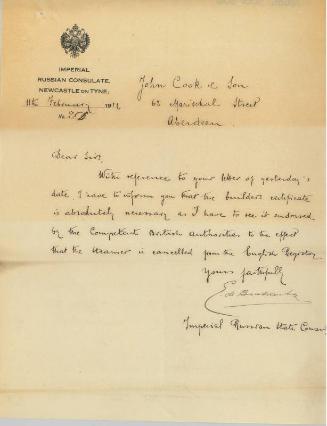 IMPERIAL
RUSSIAN CONSULATE,
NEWCASTLE ON TYNE,
11th February 191
No.
John Cook & Son
63 Marischal Street
Aberdeen.
Dear Sirs,
With reference to your letter of yesterday's
date I have to inform you that the builders certificate
is absolutely necessary as I have to see it endorsed
by the Competent British Authorities to the effect
that the steamer is cancelled from the English Registry
Yours faithfully
Imperial Russian State Consul